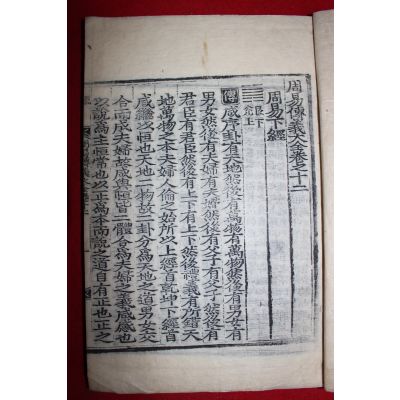 周易傳義大全卷之十二
周易下經
䷞
艮下
兌上
傳咸序卦有天地然後有萬物有萬物然後有男女有
男女然後有夫婦有夫婦然後有父子有父子然後有
君臣有君臣然後有上下有上下然後禮義有所錯天
地萬物之本夫婦人倫之始所以上經首乾坤下經首
咸繼以恒也天地二物故二卦分爲天地之道男女交
合而成夫婦故咸與恒皆二體合爲夫婦之義咸感也
以說爲主恒常也以正爲本而說之道自有正也正之